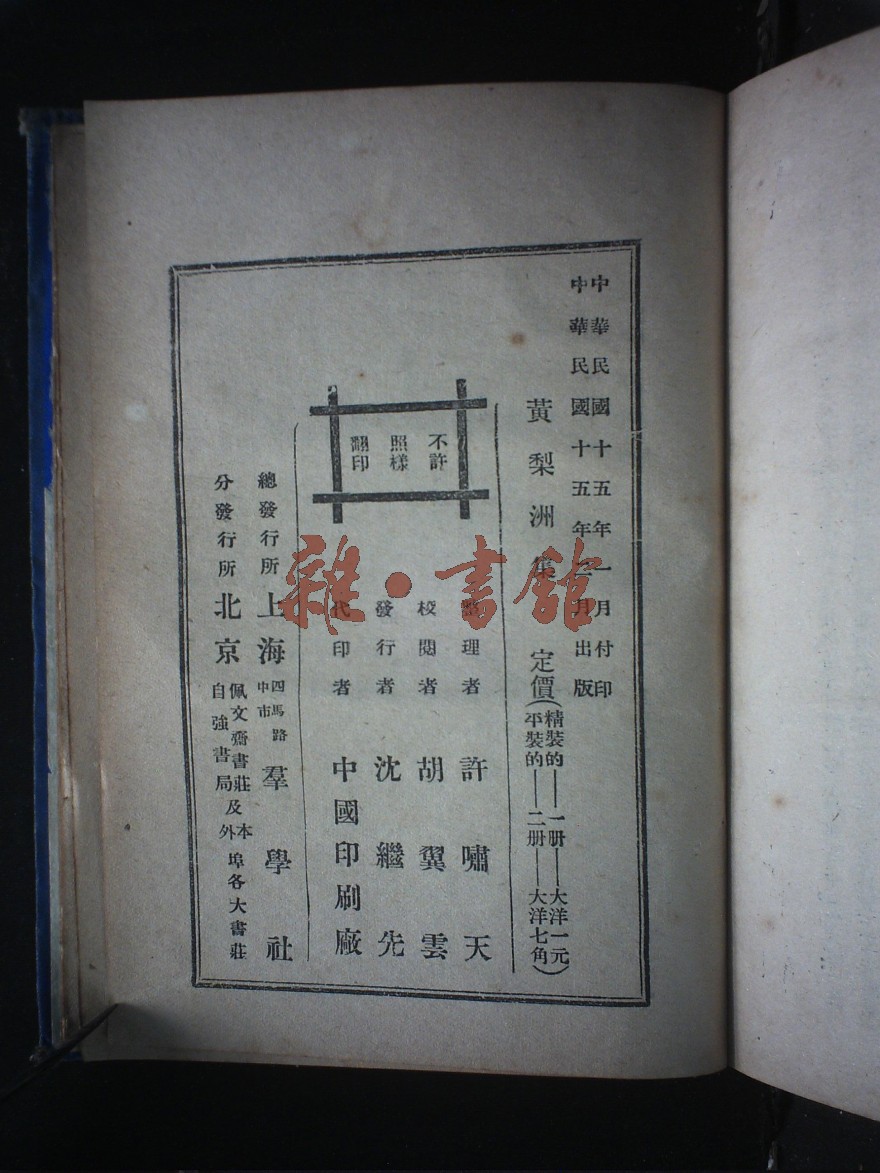 中華民國十五年一月付印
中華民國十五年二月出版
黃梨洲集 定價(精裝的——一册——大洋一元
平裝的——二册——大洋七角)
不許
照樣
翻印
整理者 許嘯天
校閱者 胡翼雲
發行者 沈繼先
代印者 中國印刷廠
總發行所 上海四馬路中市 羣學社
分發行所 北京佩文齋書莊及本
自強書局 外埠各大書莊
雜·書館